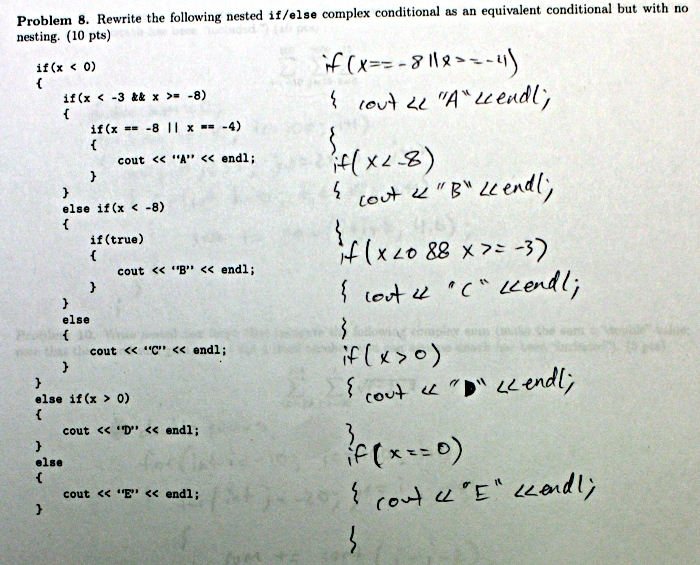 Problem 8. Rewrite the following nested if/else complex conditional as an equivalent conditional but with no
nesting. (10 pts)
if(x < 0)
{
if(x < -3 && x >= -8)
{
if(x == -8 || x == -4)
{
cout << "A" << endl;
}
}
else if(x < -8)
{
if(true)
{
cout << "B" << endl;
}
}
else
{
cout << "C" << endl;
}
}
else if(x > 0)
{
cout << "D" << endl;
}
else
{
cout << "E" << endl;
}
if(x==-8||x==-4)
{ cout << "A" <<endl;
}
if(x<-8)
{ cout << "B" <<endl;
}
if(x<0 && x>=-3)
{ cout << "C" <<endl;
}
if(x>0)
{ cout << "D" <<endl;
}
if(x==0)
{ cout << "E" <<endl;
}